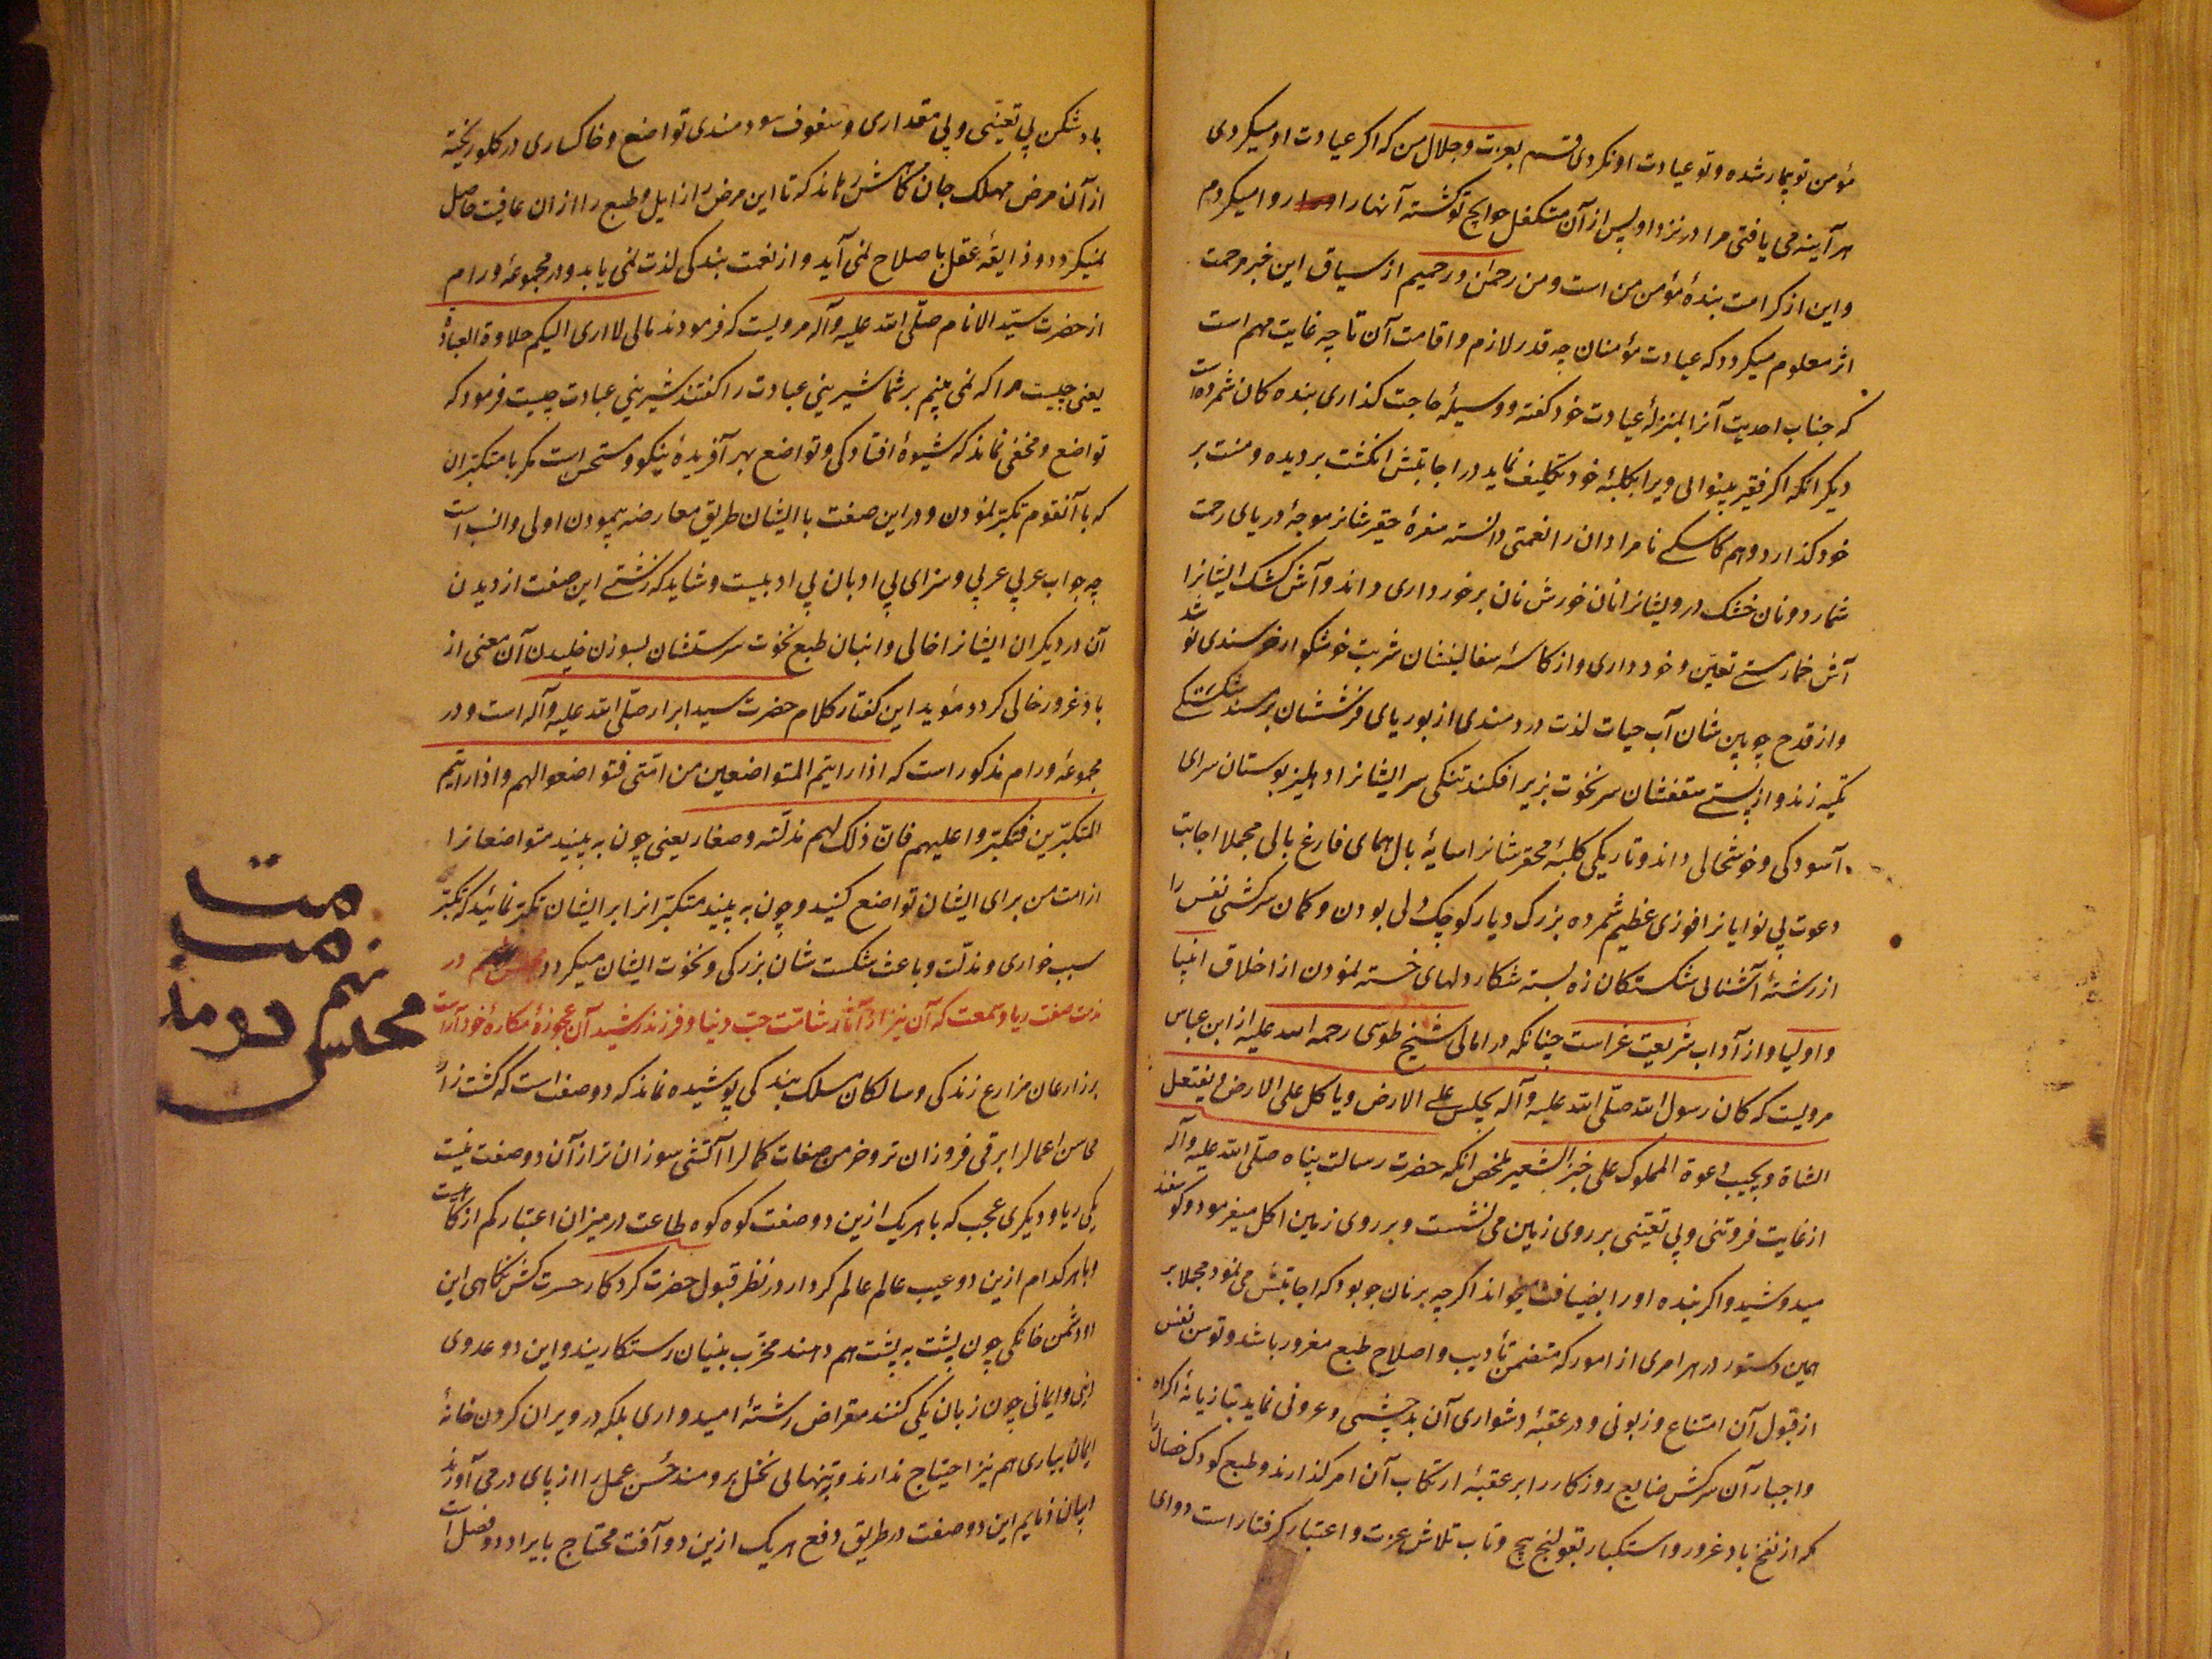 مؤمن تو بیمار شده و تو عیادت او نکردی قسم بعزت و جلال من که اگر عیادت او میکردی
هر آینه می یافتی مرا در نزد او پس از آن متکفل حوایج تو گشته آنها را روا میکردم
و این از کرامت بندهٔ مؤمن من است و من رحمن و رحیم از سیاق این خبر مرحمت
اثر معلوم میگردد که عیادت مؤمنان چه قدر لازم و اقامت آن تا چه غایت مهم است
که جناب احدیت آنرا بمنزلهٔ عیادت خود گفته و وسیلهٔ حاجت گذاری بنده کان شمرده است
دیگر آنکه اگر فقیر بینوائی ویرا بکلبهٔ خود تکلیف نماید در اجابتش انگشت بر دیده و منت بر
خود گذارد و هم کاسگی نامرادان را نعمتی دانسته سفرهٔ حقیر شانرا موجهٔ دریای رحمت
شمارد و نان خشک درویشانرا نان خورش نان برخورداری داند و آش کشک ایشانرا
آش خمار مستی تعین و خودداری و از کاسهٔ سفالینشان شربت خوشگوار خرسندی نوشد
و از قدح چوبین شان آب حیات لذت دردمندی از بوریای فرششان بر مسند شکستگی
تکیه زند و از پستی سقفشان سر نخوت بزیر افکند تنگی سر ایشانرا دهلیز بوستان سرای
آسودگی و خوشحالی داند و تاریکی کلبهٔ محقر شانرا سایهٔ بال همای فارغ بالی مجملا اجابت
دعوت بی نوایانرا فوزی عظیم شمرده بزرگ دیار کوچک دلی بودن و کمان سرکشی نفس را
از رشتهٔ آشنائی شکستگان زه بسته شکار دلهای خسته نمودن از اخلاق انبیا
و اولیا و از آداب شریعت غراست چنانکه در امالی شیخ طوسی رحمه الله علیه از ابن عباس
مرویست که کان رسول الله صلّی الله علیه وآله یجلس علی الارض و یاکل علی الارض و یعتقل
الشاة و یجیب دعوة المملوک علی خبز الشعیر ملخص آنکه حضرت رسالت پناه صلّی الله علیه وآله
از غایت فروتنی و بی تعینی بر روی زمین می نشست و بر روی زمین اکل میفرمود و گوسفند
میدوشید و اگر بنده او را بضیافت میخواند اگر چه بر نان جو بود که اجابتش می نمود مجملا بر
همین دستور در هر امری از امور که متضمن تأدیب و اصلاح طبع مغرور باشد و توسن نفس
از قبول آن امتناع و زبونی و در عقبهٔ دشواری آن بدچشمی و حرونی نماید بتازیانهٔ اکراه
و اجبار آن سرکش ضایع روزگار را بر عقبهٔ ارتکاب آن امر گذارند و طبع کودک خصال را
که از نفخ باد غرور و استکبار بقولنج پیچ و تاب تلاش عزت و اعتبار گرفتار است دوای
باد شکن بی تعینی و بی مقداری و سفوف سودمندی تواضع و خاکساری در گلو ریخته
از آن مرض مهلک جان کاهش رهاند که تا این مرض زایل و طبع را از آن عافیت حاصل
نمیگردد و ذایقهٔ عقل باصلاح نمی آید و از نعمت بندگی لذت نمی یابد و در مجموعهٔ ورام
از حضرت سیّد الانام صلّی الله علیه وآله مرویست که فرمودند مالی لا اری الیکم حلاوة العبادة
یعنی چیست مرا که نمی بینم بر شما شیرینی عبادت را گفتند شیرینی عبادت چیست فرمود که
تواضع و مخفی نماند که شیوهٔ افتادگی و تواضع بهر آفریدهٔ نیکو و مستحسن است مگر با متکبران
که با آنقوم تکبّر نمودن و در این صفت با ایشان طریق معارضه پیمودن اولی و انسب است
چه جواب عربی عربی و سزای بی ادبان بی ادبیست و شاید که زشتی این صفت از دیدن
آن در دیگران ایشانرا خالی و انبان طبع نخوت سرشتشان بسوزن خلیدن آن معنی از
باد غرور خالی گردد مؤید این گفتار کلام حضرت سید ابرار صلّی الله علیه وآله است و در
مجموعهٔ ورام مذکور است که اذا رایتم المتواضعین من امّتی فتواضعوا لهم و اذا رایتم
المتکبّرین فتکبّروا علیهم فانّ ذلک لهم مذلّة و صغار یعنی چون به بینید متواضعانرا
از امت من برای ایشان تواضع کنید و چون به بینید متکبّرانرا بر ایشان تکبّر نمائید که تکبّر
سبب خواری و مذلّت و باعث شکست شان بزرگی و نخوت ایشان میگردد در
مذمت صفت ریا و سمعت که آن نیز از آثار شامت حبّ دنیا و فرزند رشید آن عجوزهٔ مکارهٔ خودآراست
بر زارعان مزارع زندگی و سالکان مسلک بندگی پوشیده نماند که دو صفت است که کشت زار
محاسن اعمالرا برقی فروزان تر و خرمن صفات کمالرا آتشی سوزان تر از آن دو صفت نیست
یکی ریا و دیگری عجب که با هریک ازین دو صفت کوه کوه طاعت در میزان اعتبار کم از کاهست
و با هرکدام ازین دو عیب عالم عالم کردار در نظر قبول حضرت کردگار حسرت کش نگاهی این
دو دشمن خانگی چون پشت به پشت هم دهند مخرّب بنیان رستگاریند و این دو عدوی
دینی و ایمانی چون زبان یکی کنند مقراض رشتهٔ امیدواری بلکه در ویران کردن خانهٔ
ایمان بیاری هم نیز احتیاج ندارند و بتنهائی نخل برومند حسن عمل را از پای در می آورند
بیان ذمایم این دو صفت در طریق دفع هریک ازین دو آفت محتاج بایراد دو فصل است
مجلس نهم